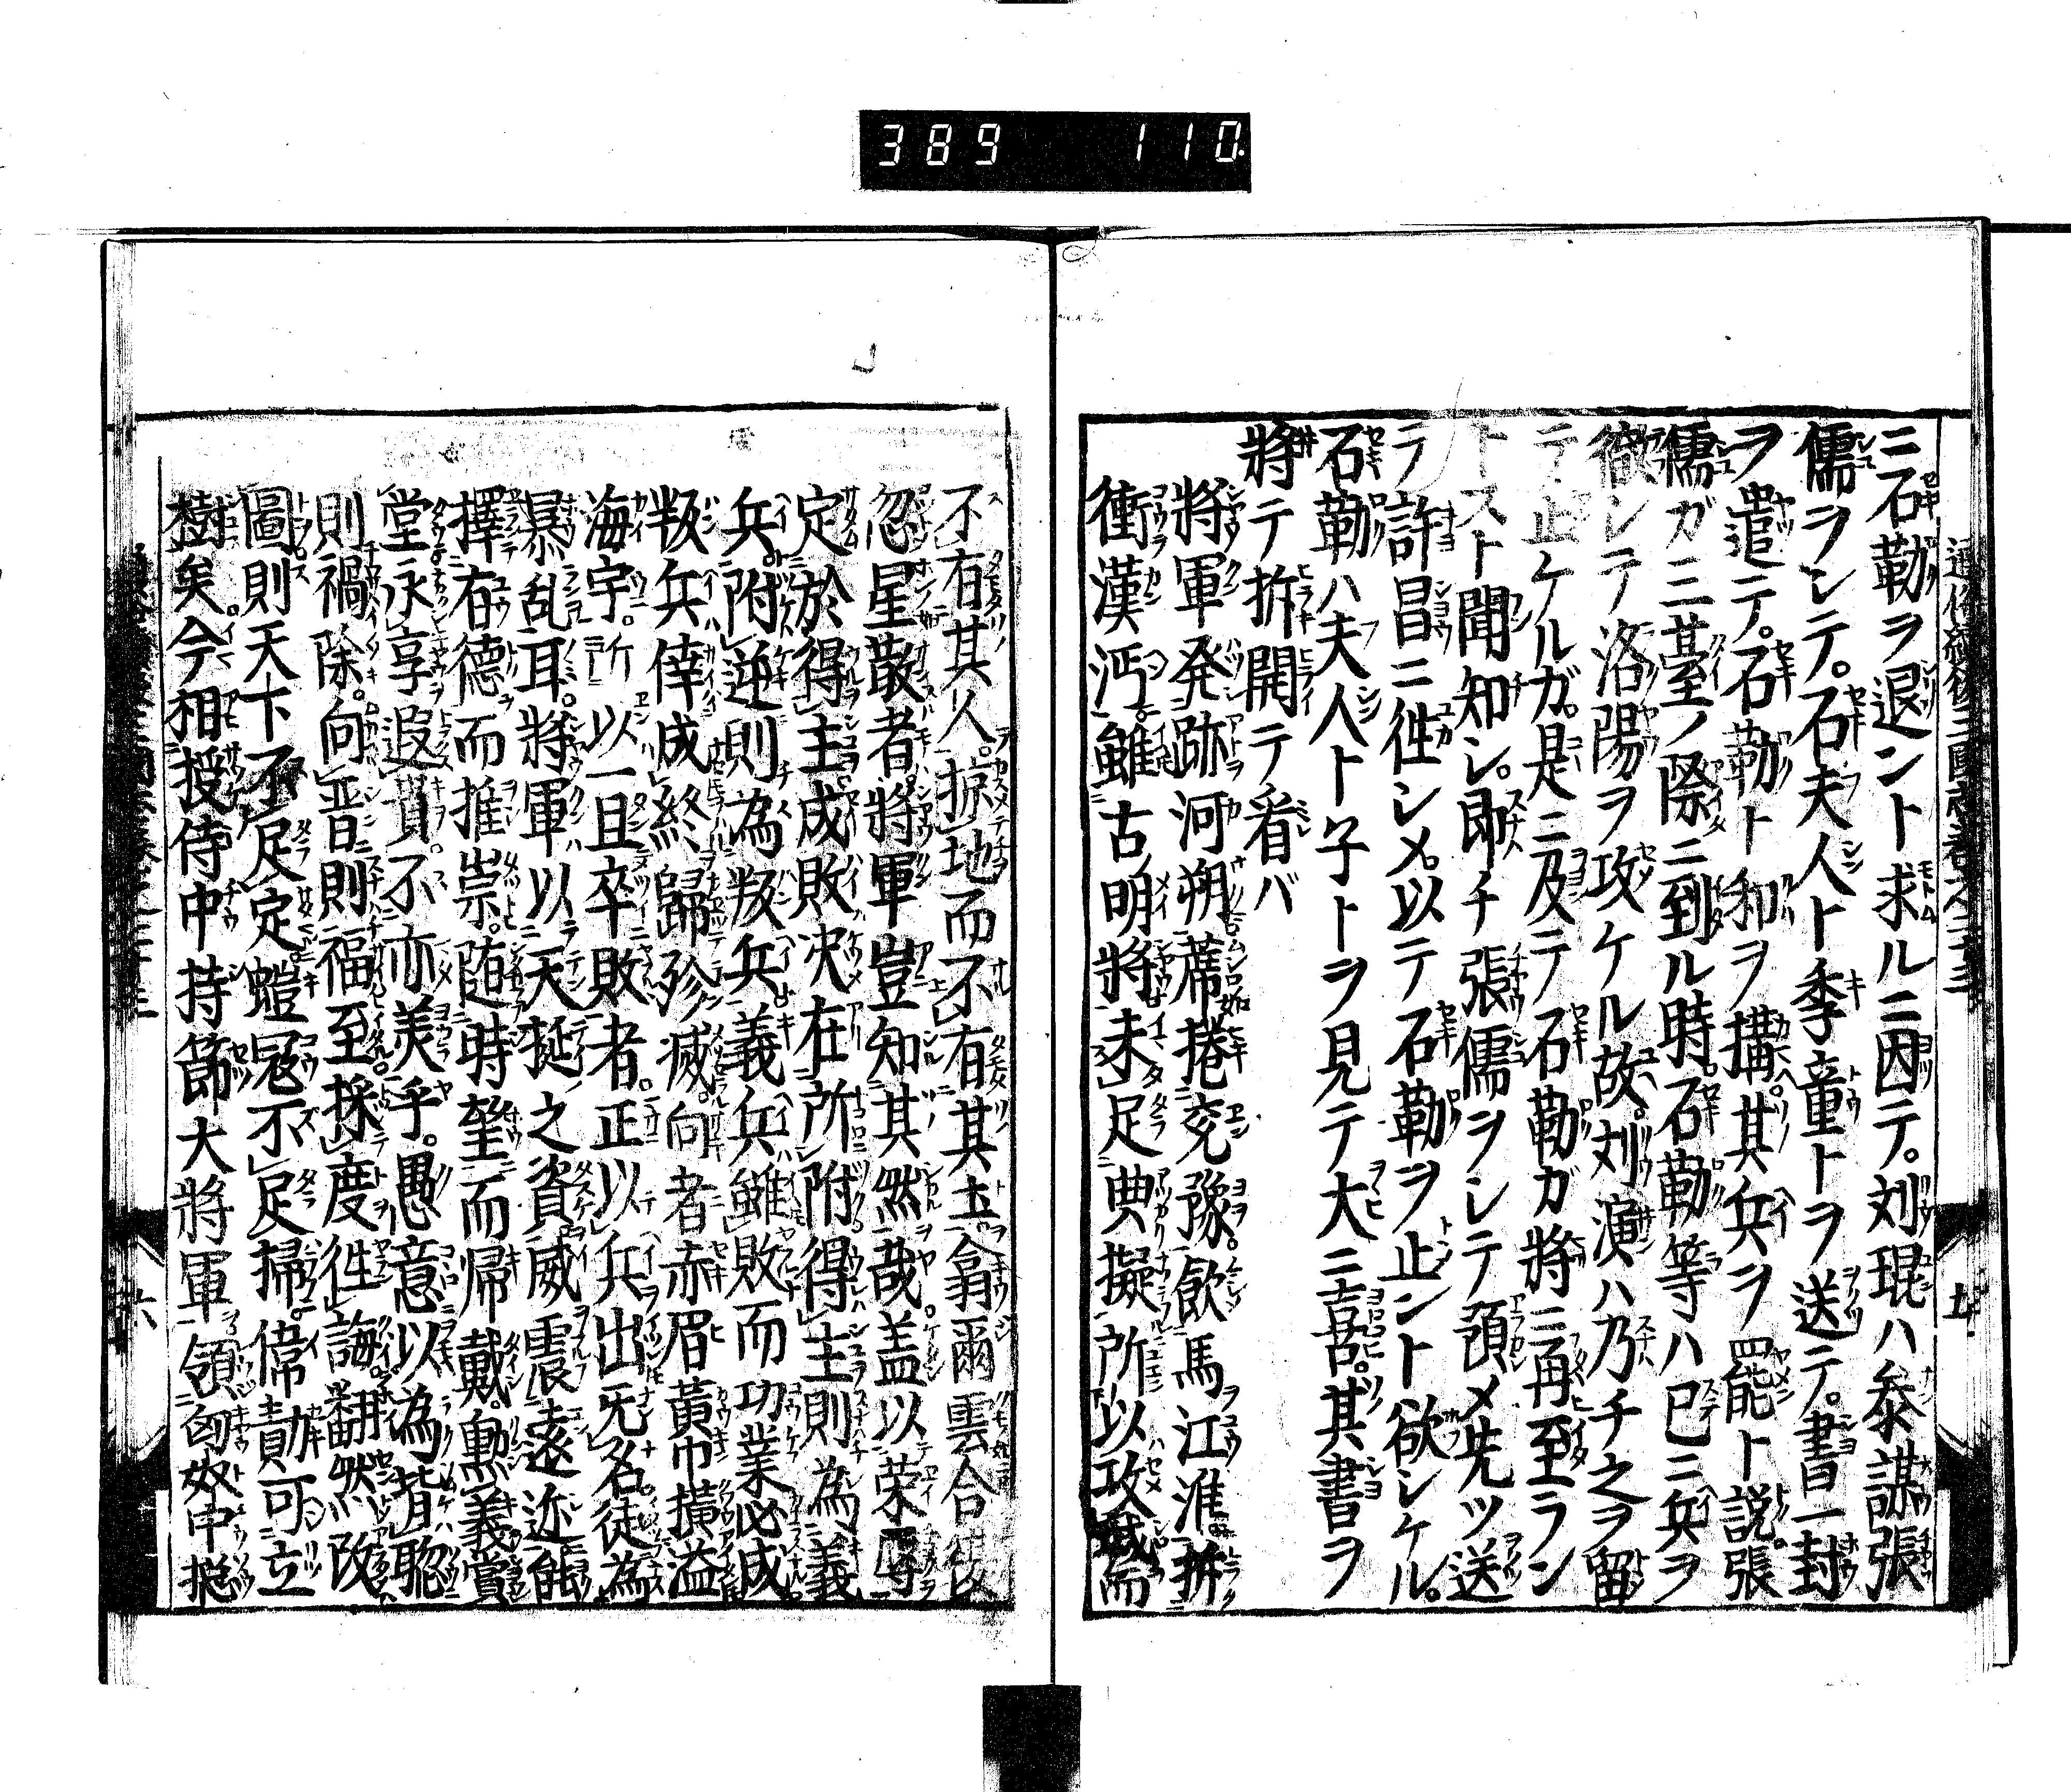 389 110.
通俗續後三國志卷之三十三 五
ニ石勒ヲ退ント求ルニ因テ。刘琨ハ叅謀張
儒ヲシテ。石夫人ト季童トヲ送テ。書一封
ヲ遣テ。石勒ト和ヲ搆。其兵ヲ罷ト説。張
儒ガ三䑓ノ際ニ到ル時。石勒等ハ巳ニ兵ヲ
シテ洛陽ヲ攻ケル故。刘演ハ乃チ之ヲ留
テ止ケルガ。是ニ及テ石勒ガ將ニ再至ラン
トスト聞知シ。即チ張儒ヲシテ預メ先ツ送
テ許昌ニ徃シメ。以テ石勒ヲ止ント欲シケル。
石勒ハ夫人ト子トヲ見テ大ニ喜。其書ヲ
將テ拆開テ看バ
將軍発跡河朔。蓆捲兗豫。飲馬江淮。拆
衝漢沔。雖古明將未足㒷擬所以攻城而
不有其人。掠地而不有其土。翕爾雲合
忽星散者。將軍豈知其然哉。盖以荣辱
定於得主。成敗决在所附得主則為義
兵。附逆則為叛兵。義兵雖敗而功業必成
叛兵倖成終歸殄滅。向者赤眉黃巾擴溢
海宇。所以一旦卒敗者。正以兵出无名徒為
暴乱耳。將軍以天挻之資威震遠迩。能
擇有德而推崇。随時𦤶而帰戴。勲義
堂永享遐貴。不亦美乎。愚意以為背聦
則禍除。向晋則福至採度徃誨翻然改
圖則天下不足定。螘冦不足掃。偉勣可立
樹矣。今相授侍中持節大將軍領匈奴中
六